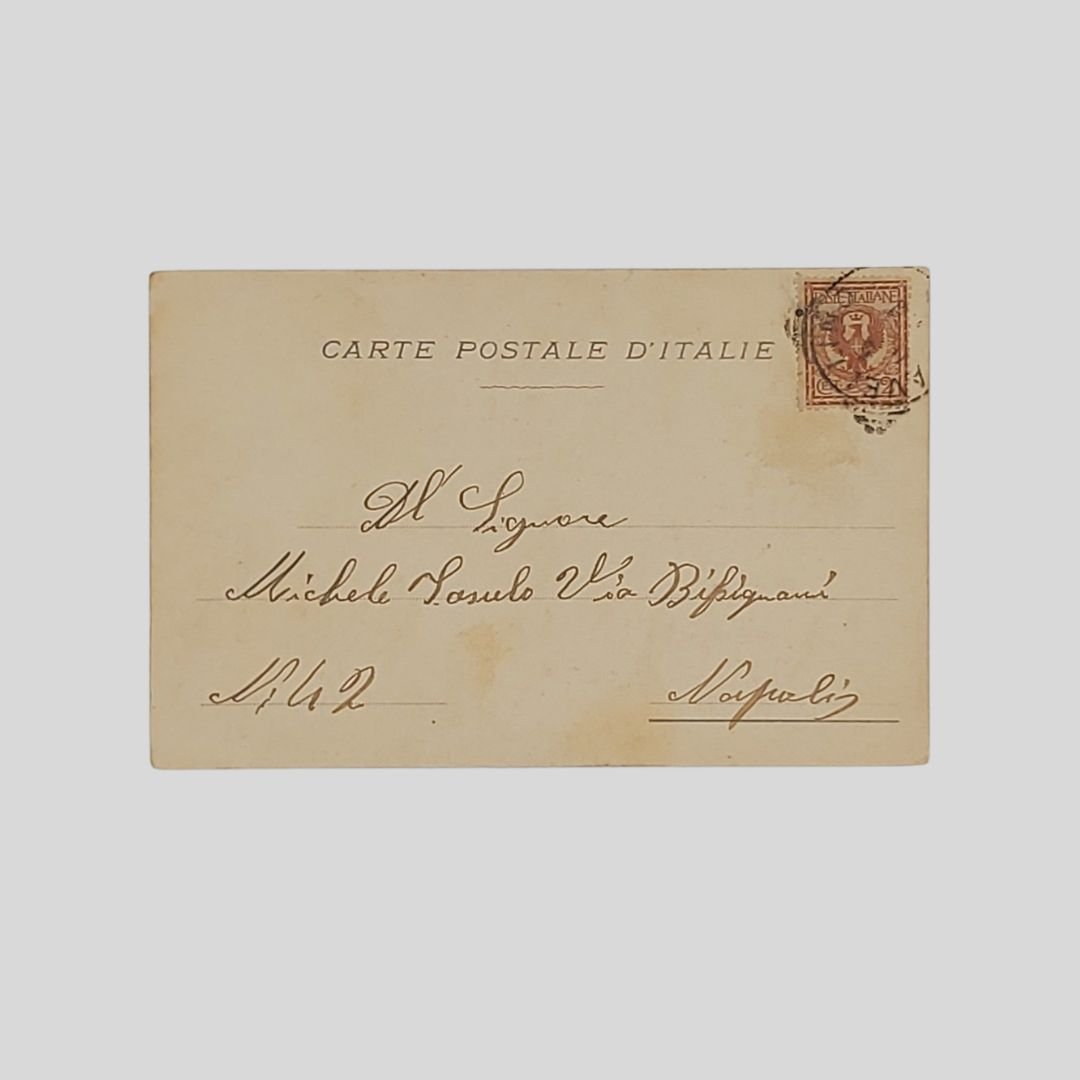 CARTE POSTALE D'ITALIE
POSTE ITALIANE
CENT. 2
Al Signore
Michele Iasulo Via Bisignani
N: 42
Napoli